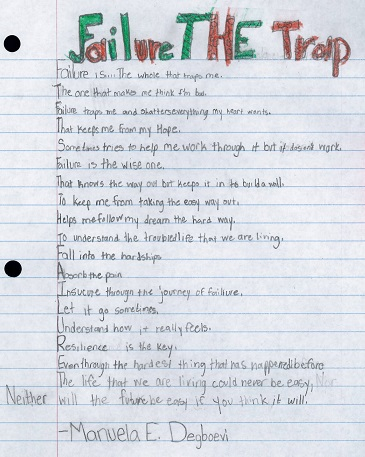 Failure THE Trap
Failure is... The whole that traps me.
The one that makes me think I'm bad.
Failure traps me and shatters everything my heart wants.
That keeps me from my Hope.
Sometimes tries to help me work through it but it doesnt work.
Failure is the wise one.
That knows the way out but keeps it in to build a wall.
To keep me from taking the easy way out.
Helps me follow my dream the hard way.
To understand the troubled life that we are living.
Fall into the hardships
Absorb the pain
Insucure through the journey of failure.
Let it go sometimes.
Understand how it really feels.
Resilience is the key.
Even through the hardest thing that has happened before
The life that we are living could never be easy, Nor
Neither will the future be easy if you think it will.
-Manuela E. Degboevi